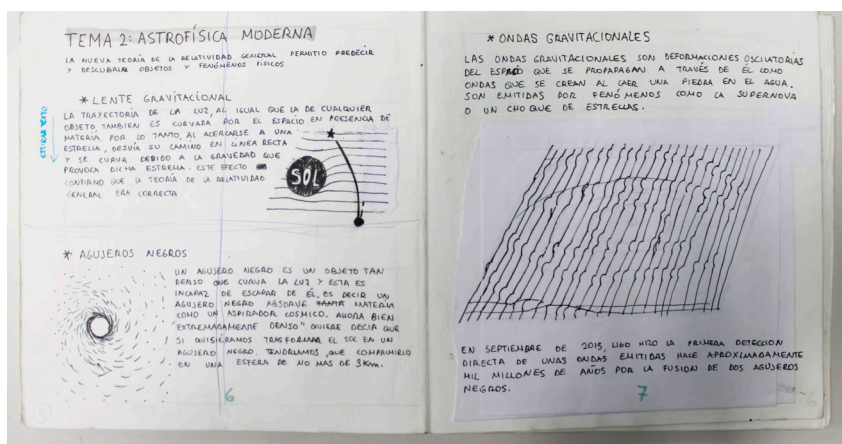 TEMA 2: ASTROFÍSICA MODERNA
LA NUEVA TEORÍA DE LA RELATIVIDAD GENERAL PERMITIO PREDECIR
Y DESCUBRIR OBJETOS Y FENÓMENOS FÍSICOS
* LENTE GRAVITACIONAL
LA TRAYECTORIA DE LA LUZ, AL IGUAL QUE LA DE CUALQUIER
OBJETO, TAMBIEN ES CURVADA POR EL ESPACIO EN PRESENCIA DE
MATERIA, POR LO TANTO, AL ACERCARSE A UNA
ESTRELLA, DESVÍA SU CAMINO EN LINEA RECTA
Y SE CURVA DEBIDO A LA GRAVEDAD QUE
PROVOCA DICHA ESTRELLA. ESTE EFECTO
CONFIRMO QUE LA TEORÍA DE LA RELATIVIDAD
GENERAL ERA CORRECTA
ESTIRAR TEXTO
SOL
* AGUJEROS NEGROS
UN AGUJERO NEGRO ES UN OBJETO TAN
DENSO QUE CURVA LA LUZ Y ESTA ES
INCAPAZ DE ESCAPAR DE ÉL, ES DECIR UN
AGUJERO NEGRO ABSORVE TANTA MATERIA
COMO UN ASPIRADOR COSMICO. AHORA BIEN
EXTREMADAMENTE DENSO" QUIERE DECIR QUE
SI QUISIÉRAMOS TRASFORMAR EL SOL EN UN
AGUJERO NEGRO, TENDRIAMOS, QUE COMPRIMIRLO
EN UNA ESFERA DE NO MAS DE 3Km.
6
* ONDAS GRAVITACIONALES
LAS ONDAS GRAVITACIONALES SON DEFORMACIONES OSCILATORIAS
DEL ESPACIO QUE SE PROPAGAN A TRAVÉS DE ÉL COMO
ONDAS QUE SE CREAN AL CAER UNA PIEDRA EN EL AGUA.
SON EMITIDAS POR FENÓMENOS COMO LA SUPERNOVA
O UN CHOQUE DE ESTRELLAS.
EN SEPTIEMBRE DE 2015, LIGO HIZO LA PRIMERA DETECCION
DIRECTA DE UNAS ONDAS EMITIDAS HACE APROXIMADAMENTE
MIL MILLONES DE AÑOS POR LA FUSION DE DOS AGUJEROS
NEGROS.
7